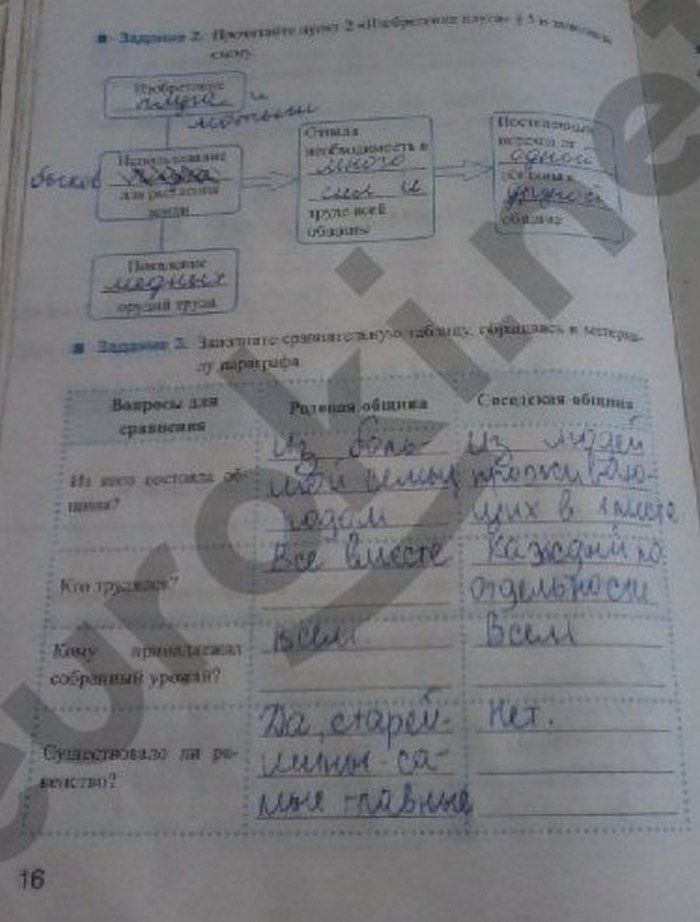 Задание 2. Прочитайте пункт 2 «Изобретение плуга» § 5 и
схему.
Изобретение
плуга и
мотыги
Использование
быков
для рыхления
земли
Появление
медных
орудий труда
Отпала
необходимость в
много
сил и
труде всей
общины
Постепенный
переход от
одной
общины к
другой
общине
Задание 3. Заполните сравнительную таблицу, обращаясь к материа-
лу параграфа.
Вопросы для
сравнения
Родовая община
Соседская община
Из кого состояла об-
щина?
Из боль-
шой семьи
родом
из людей
проживаю-
щих в 1 месте
Кто трудился?
Все вместе
Каждый по
отдельности
Кому принадлежал
собранный урожай?
всем
Всем
Существовало ли ра-
венство?
Да, старей-
шины-са-
мые главные
Нет.
16